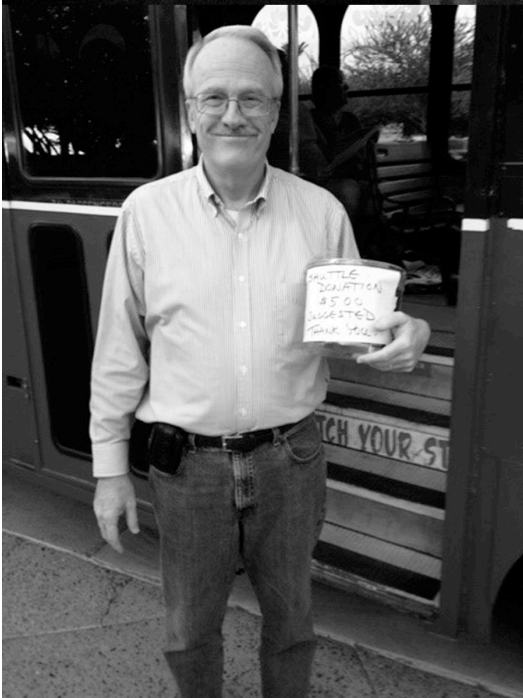 SHUTTLE
DONATION
$5.00
SUGGESTED
THANK YOU
TCH YOUR ST